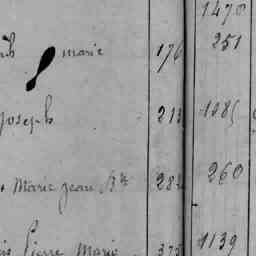 1478
marie 176 251
Joseph 213 1285
Marie Jean Bte 282 260
Pierre Marie 373 1139